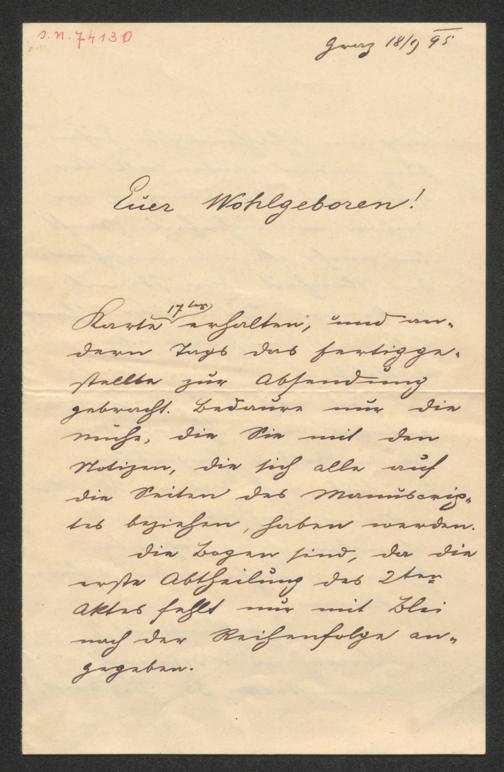 s.n. 74130
Graz 18/9 95
Euer Wohlgeboren!
17ter
Karte erhalten, und an-
dern Tags das fertigge-
stellte zur Absendung
gebracht. Bedaure nur die
Mühe, die Sie mit den
Notizen, die sich alle auf
die Seiten des Manuscrip-
tes beziehen, haben werden.
Die Bogen sind, da die
erste Abtheilung des 2ter
Aktes fehlt nur mit Blei
nach der Reihenfolge an-
gegeben.